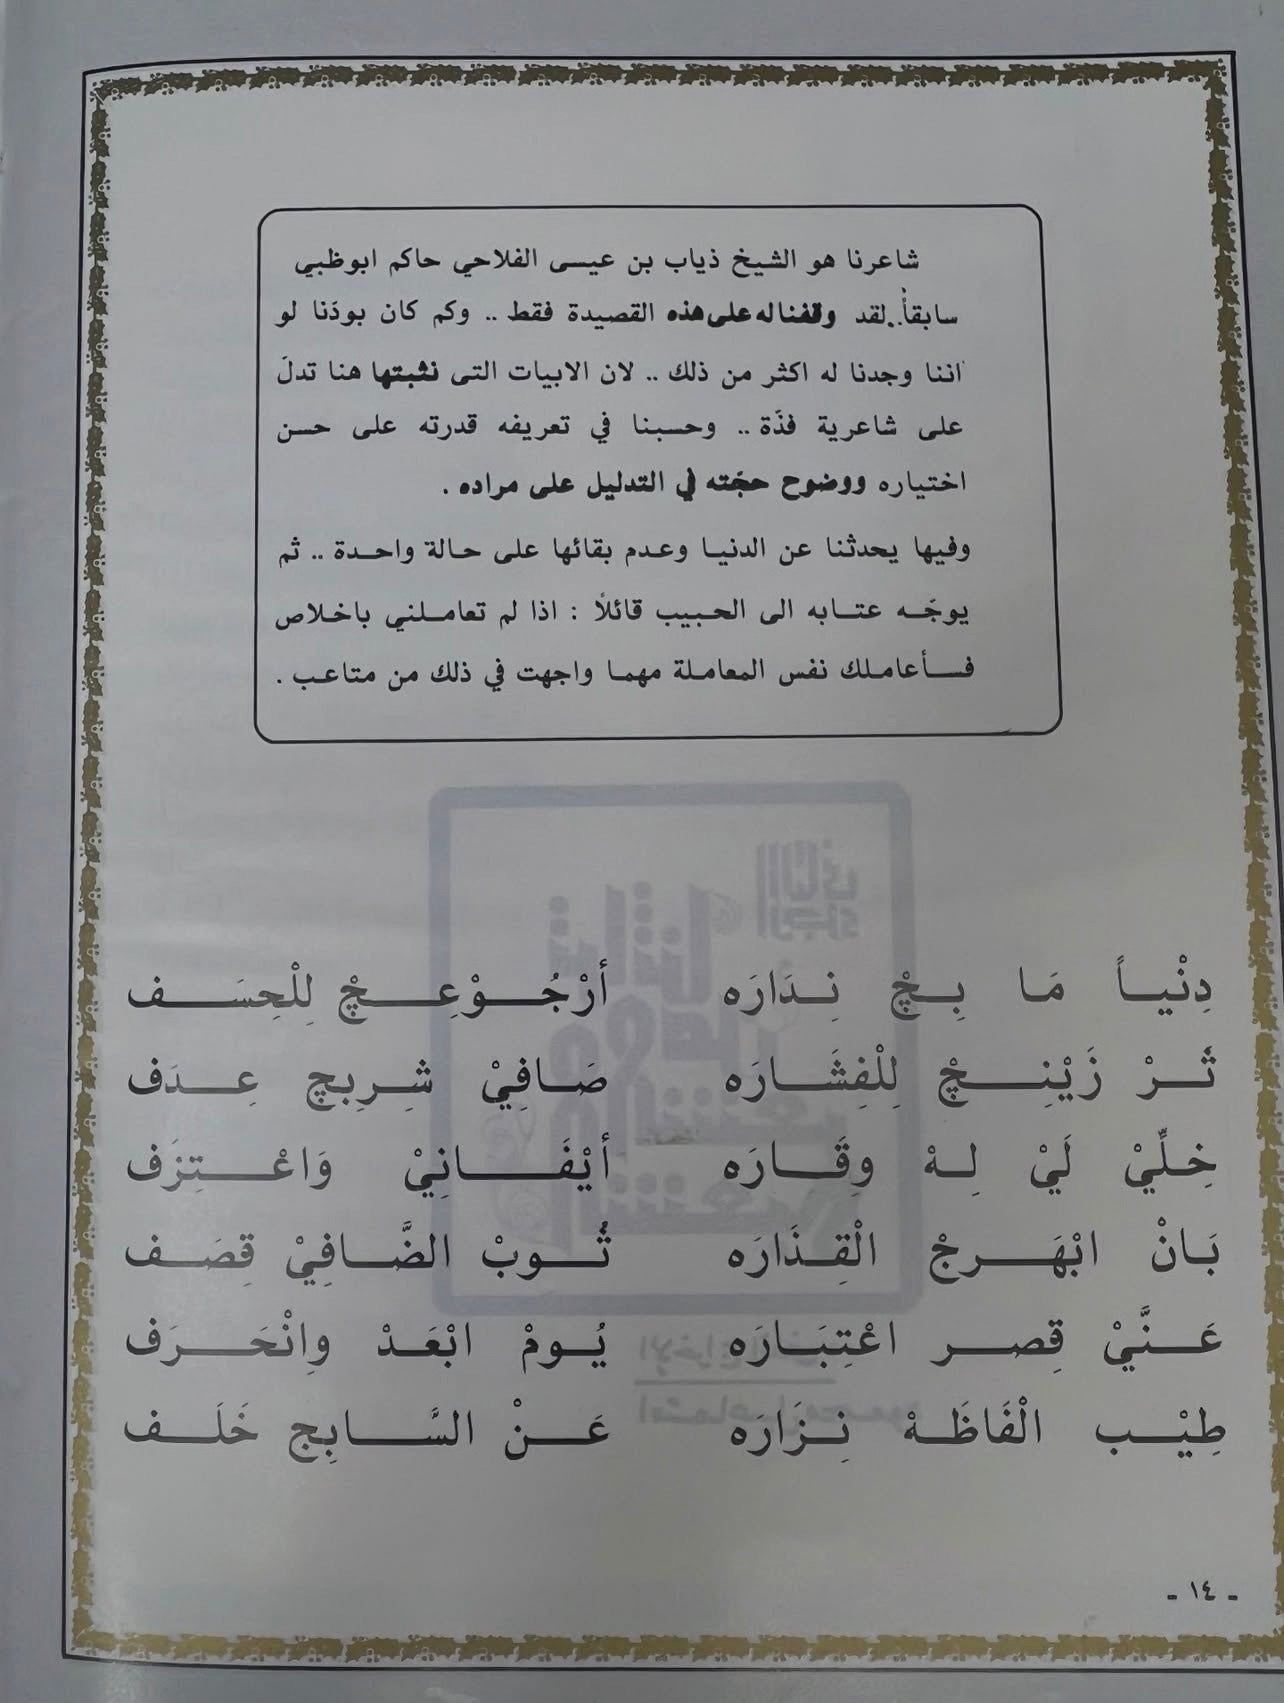 شاعرنا هو الشيخ ذياب بن عيسى الفلاحي حاكم ابوظبي
سابقاً..لقد وقفنا له على هذه القصيدة فقط .. وكم كان بودّنا لو
اننا وجدنا له اكثر من ذلك .. لان الابيات التى نثبتها هنا تدلّ
على شاعرية فذّة .. وحسبنا في تعريفه قدرته على حسن
اختياره ووضوح حجّته في التدليل على مراده .
وفيها يحدثنا عن الدنيا وعدم بقائها على حالة واحدة .. ثم
يوجّه عتابه الى الحبيب قائلاً : اذا لم تعاملني باخلاص
فسأعاملك نفس المعاملة مهما واجهت في ذلك من متاعب .
دِنْياً مَا بِچْ نِدَارَه أرْجُوْعِچْ لِلْحِسَف
ثَرْ زَيْنِچْ لِلْفِشَارَه صَافِيْ شِرِبِچ عِدَف
خِلِّيْ لَيْ لِهْ وِقَارَه أيْفَانِيْ وَاعْتِزَف
بَانْ ابْهَرجْ الْقِذَارَه ثُوبْ الضَّافِيْ قِصَف
عَنَّيْ قِصر اعْتِبَارَه يُومْ ابْعَدْ وِانْحَرَف
طِيْب الْفَاظَهْ نِزَارَه عَنْ السَّابِج خَلَف
- ١٤ -